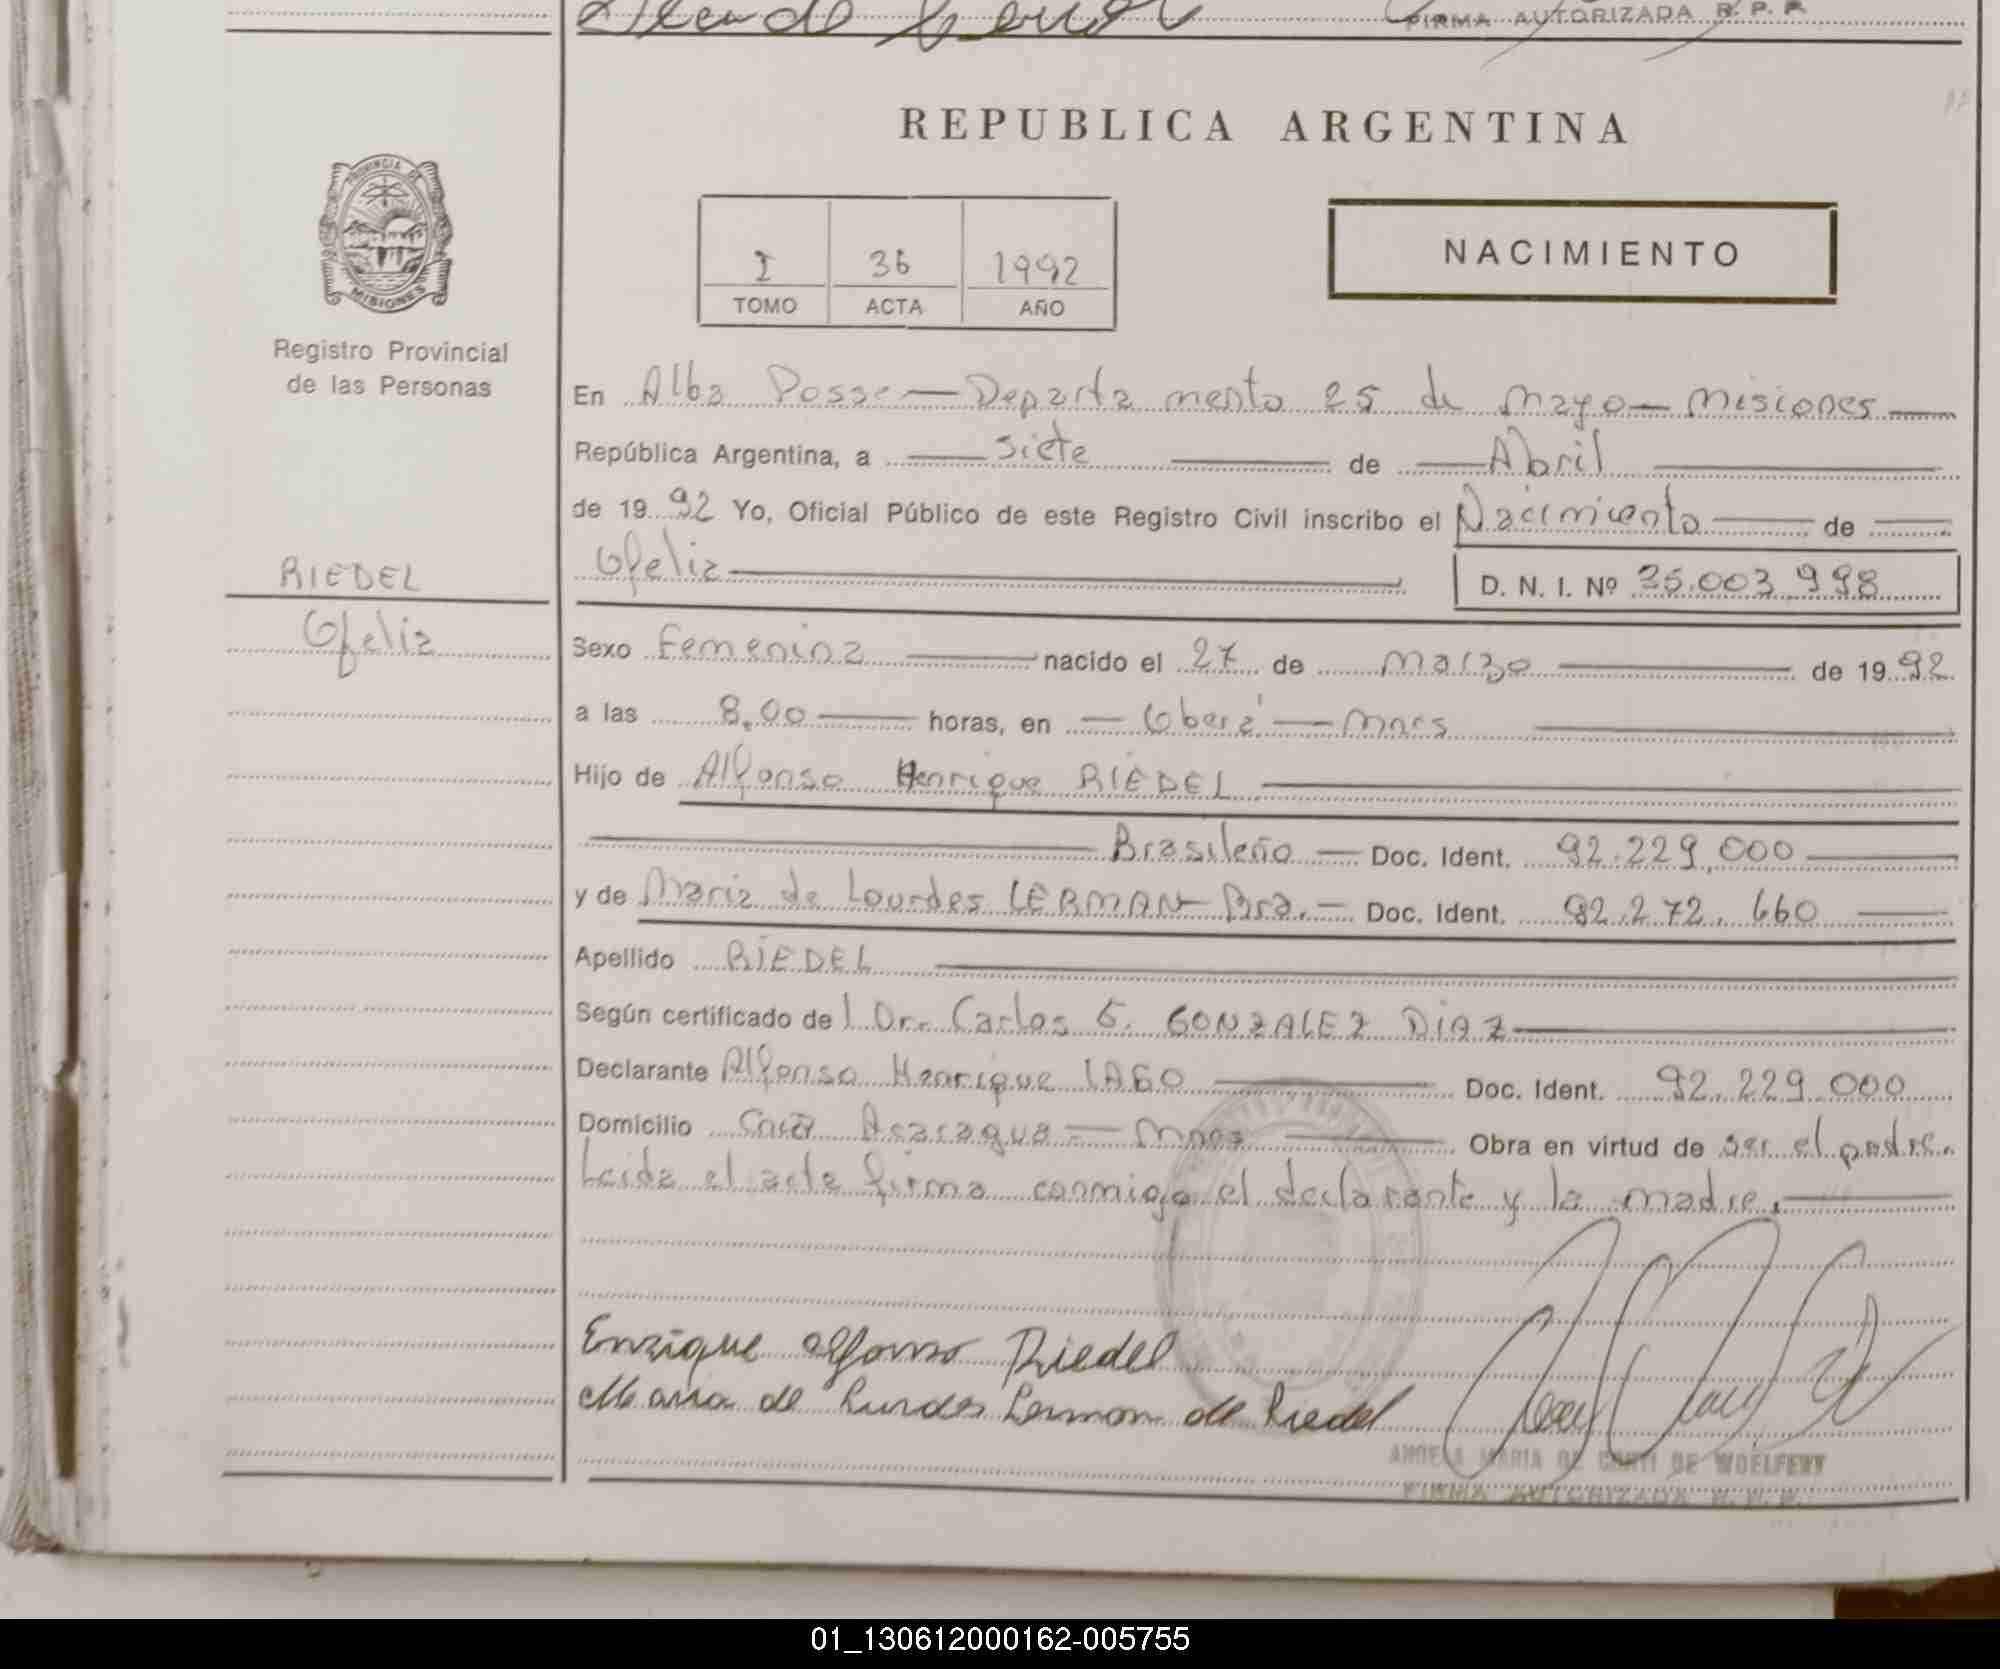 FIRMA AUTORIZADA R. P. P.
REPUBLICA ARGENTINA
PROVINCIA DE
MISIONES
Registro Provincial
de las Personas
I 36 1992
TOMO ACTA AÑO
NACIMIENTO
En Alba Posse — Departamento 25 de Mayo — Misiones —
República Argentina, a — siete — de — Abril —
de 19 92 Yo, Oficial Público de este Registro Civil inscribo el Nacimiento — de —
Ofelia —
D. N. I. Nº 36.003.998
RIEDEL
Ofelia
Sexo Femenina — nacido el 27 de marzo — de 19 92
a las 8,00 — horas, en — Oberá — Mnes —
Hijo de Alfonso Henrique RIEDEL —
— Brasileño — Doc. Ident. 92.229.000 —
y de Maria de Lourdes LERMAN — Bra. — Doc. Ident. 92.272.660 —
Apellido RIEDEL —
Según certificado de l Dr. Carlos G. GONZALEZ DIAZ —
Declarante Alfonso Henrique LAGO — Doc. Ident. 92.229.000
Domicilio Acaragua — Mnes — Obra en virtud de ser el padre.
Leida el acta firma conmigo el declarante y la madre. —
Enrique Alfonso Riedel
Maria de Lurdes Lermon de Riedel
ANGELA MARIA DE CONTI DE WOELFERT
FIRMA AUTORIZADA R. P. P.
01_130612000162-005755